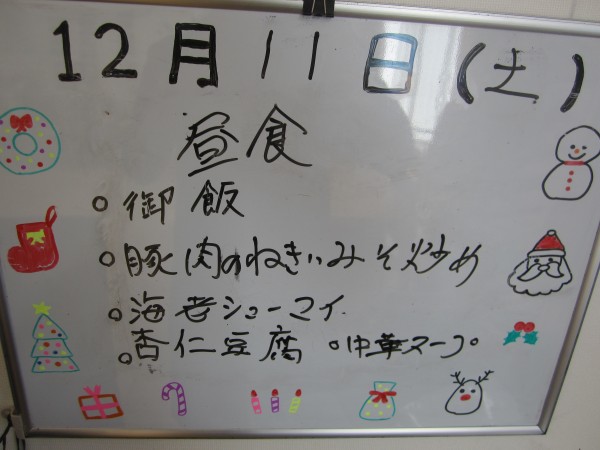 12月11日(土)
昼食
○御飯
○豚肉のねぎみそ炒め
○海老シューマイ
○杏仁豆腐 ○中華スープ